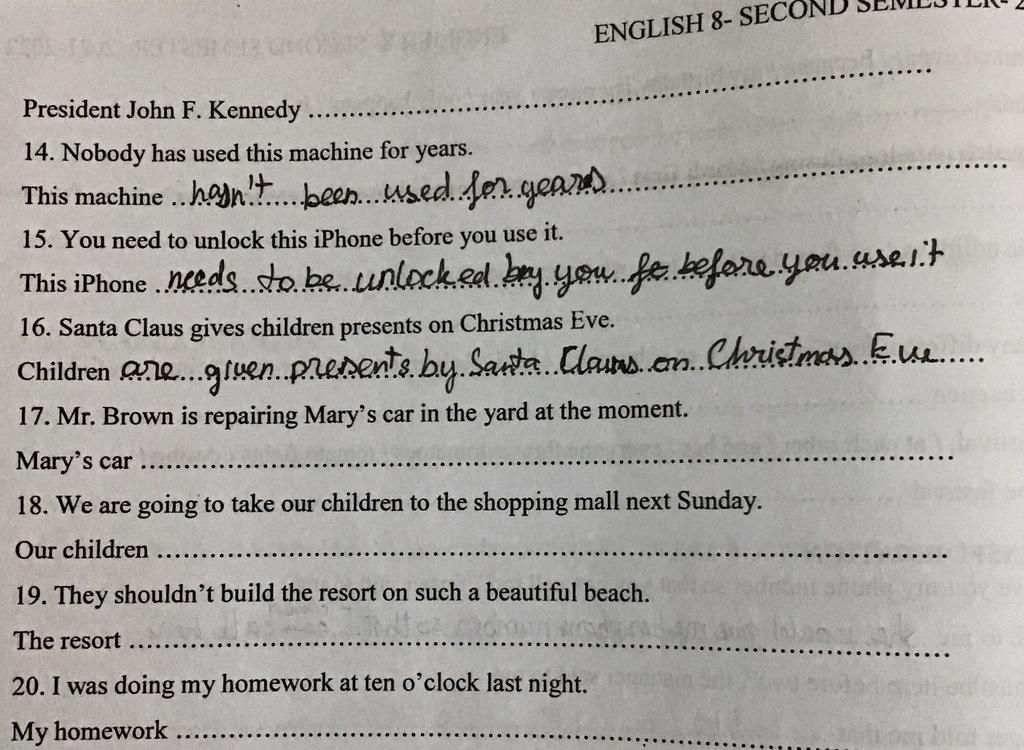 ENGLISH 8- SECOND SEMESTER- 2
President John F. Kennedy ................................................................
14. Nobody has used this machine for years.
This machine ..hasn't....been...used.for.years................................
15. You need to unlock this iPhone before you use it.
This iPhone ..needs..to.be.unlocked.by.you..before.you.use.it
16. Santa Claus gives children presents on Christmas Eve.
Children are...given..presents.by.Santa..Claus.on..Christmas..Eve.....
17. Mr. Brown is repairing Mary's car in the yard at the moment.
Mary's car ................................................................
18. We are going to take our children to the shopping mall next Sunday.
Our children ................................................................
19. They shouldn't build the resort on such a beautiful beach.
The resort ................................................................
20. I was doing my homework at ten o'clock last night.
My homework ................................................................